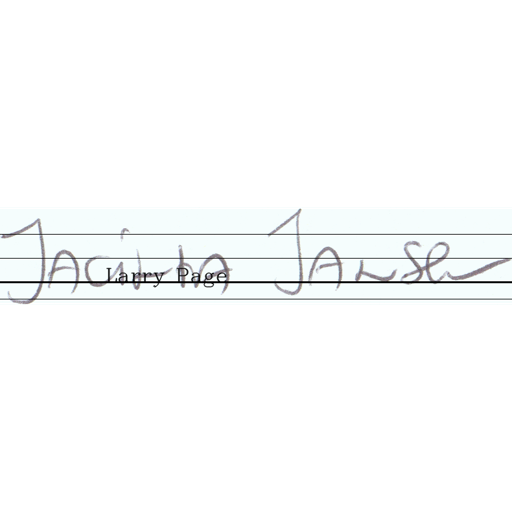 Jacintha Jansen
Larry Page